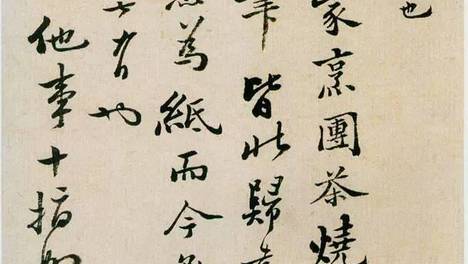 也
家烹團茶燒
皆此歸
為紙而今
也
他事十指